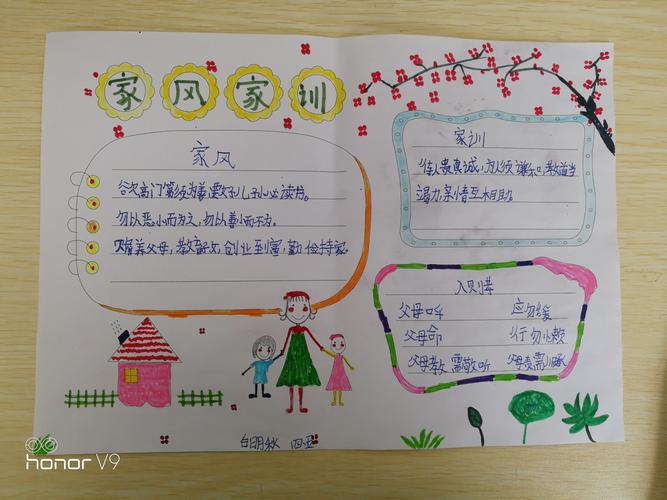 家风家训
家风
欲次高门第须为善要好儿孙必读书。
勿以恶小而为之,勿以善小而不为。
赡养父母,教育子女,创业至富,勤俭持家
家训
待人贵真诚,为人须谦和,孝道当
竭力亲情互相助。
入则孝
父母呼 应勿缓
父母命 行勿懒
父母教 需敬听 父母责需
四五
honor V9